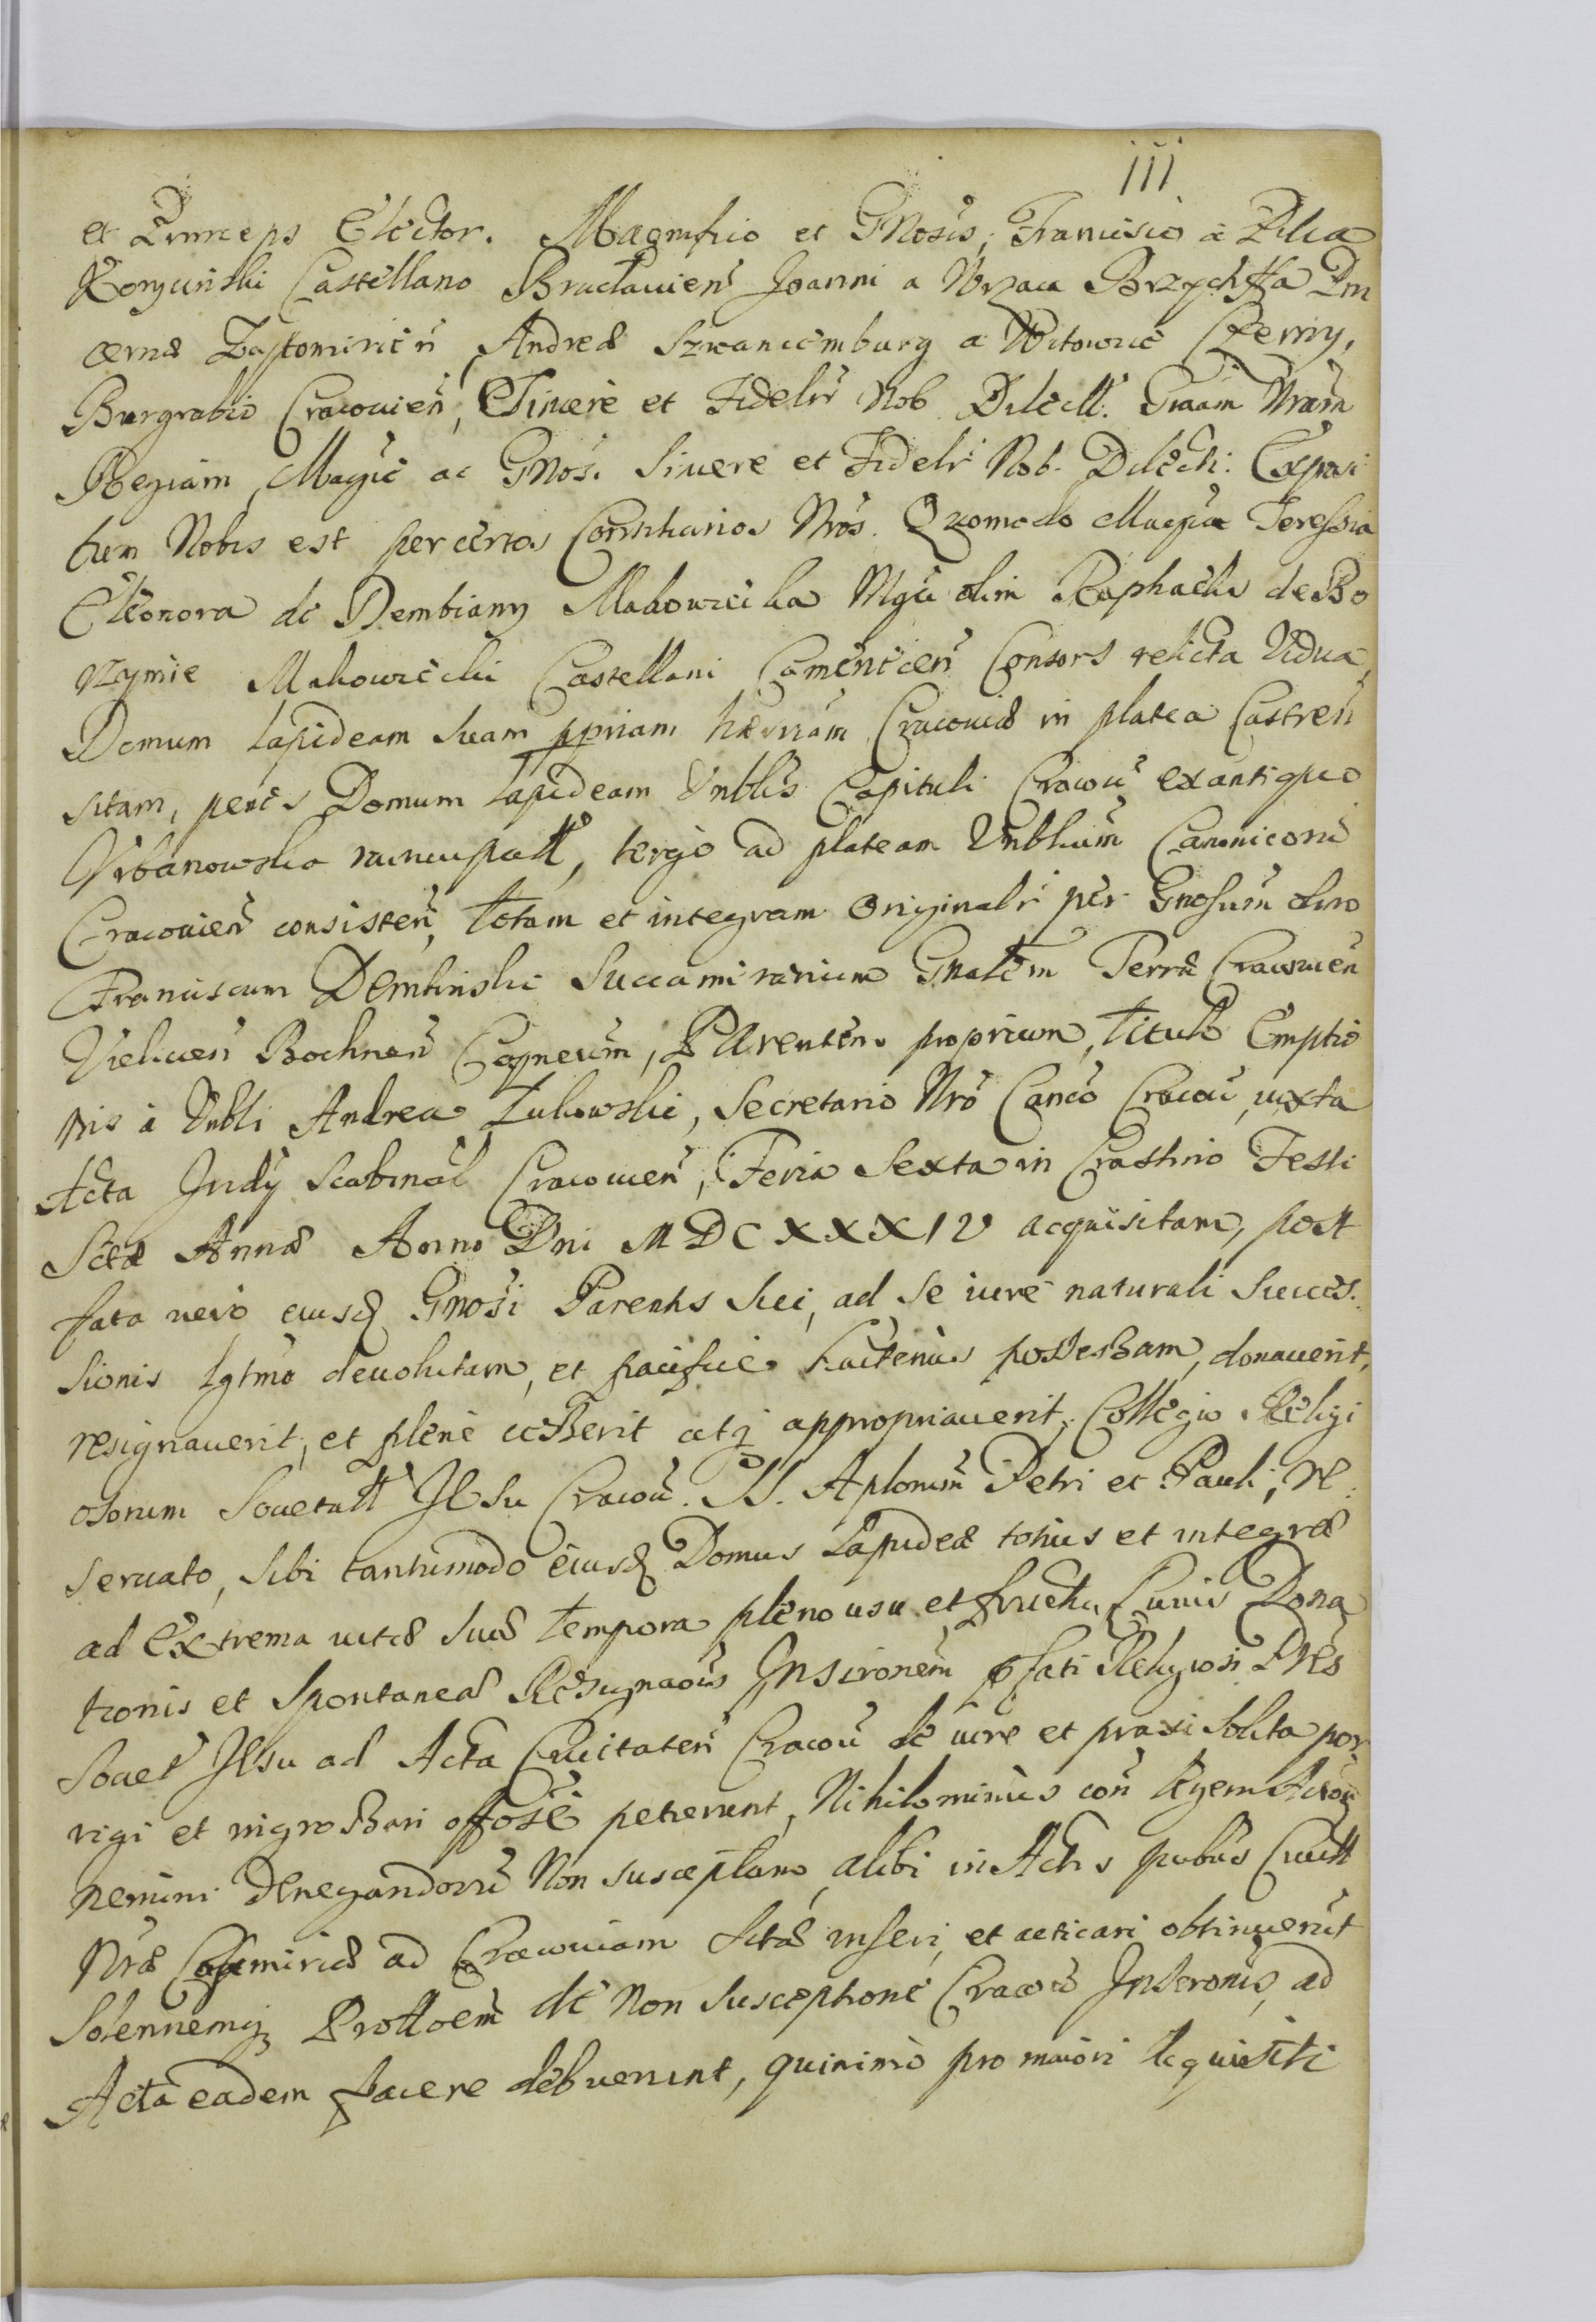 111
et Princeps Elector. Magnifico et Gnosis, Francisco à Pilca
Koryciński Castellano Braclauien̄ Joanni a Wrzaca Brzychffa Pin
cernæ Zÿtomirien̄ Andreæ Szwarcemburg a Witowice Czerny,
Burgrabio Cracouien̄, Sincere et Fidelr̄ Nob Dilectt. Graam Nram
Regiam, Magce ac Gnosi Sincere et Fidelr Nob. Dilecti. Exposi
tum Nobis est per certos Consiliarios Nros. Quomodo Magca Teressia
Eleonora de Dembiany Makowiecka Mgci olim Raphaelis de Bo
rzymie Makowiecki Castellani Camenecen̄ Consors relicta Vidua,
Domum lapideam suam ppriam hæriam Cracouiæ in platea Castren̄
sitam, penes Domum lapideam Vnblis Capituli Cracou̅ ex antiquo
Vrbanowska nuncupatt, tergo ad plateam Vnblium Canonicorū
Cracouien̄ consisten̄, totam et integram originalr̄ per Gnosum olim
Franciscum Dembinski Succamerarium Gnalem Terræ Cracouien
Vielicen̄ Bochnen̄ Parentem proprium, titulo Emptio
nis à Vnbli Andrea Lukowski, Secretario Nro Canco Cracou̅ iuxta
Acta Judÿ Scabinal Cracouien̄, Feria Sexta in Crastino Festi
Sctæ Annæ Anno Dni MDCXXXIV acquisitam, post
fata vero eiusq Gnosi Parentis sui, ad se iure naturali succes.
sionis lgtmo deuolutam, et pacifice hactenus possessam, donauerit,
resignauerit, et plene cesserit atq appropriauerit, Collegio Religi
osorum Societatt Jesu Cracou̅. SS. Aplorum Petri et Pauli, re
seruato, sibi tantumodo eiusq Domus lapideæ totius et integræ
ad Extrema vitæ suæ tempora pleno usu et fructu, Cuius Dona
tionis et Spontaneæ Resignaois Inscronem pfati Religiosi Pres
Societ Jesu ad Acta Ciuitaten̄ Cracou̅ de iure et praxi solita por
rigi et ingrossari offose petierunt, Nihilominus con̄ legem Actorū
nemini denegandorū Non susceptam, alibi in Actis pubcis Ciuitt
Nræ Casimiriæ ad Cracouiam sitæ inseri, et acticari obtinuerūt
Solennemq Prottoem de Non Susceptione Cracou̅ Inscronis, ad
Acta eadem facere debuerunt, quinimo pro maiori acquisiti